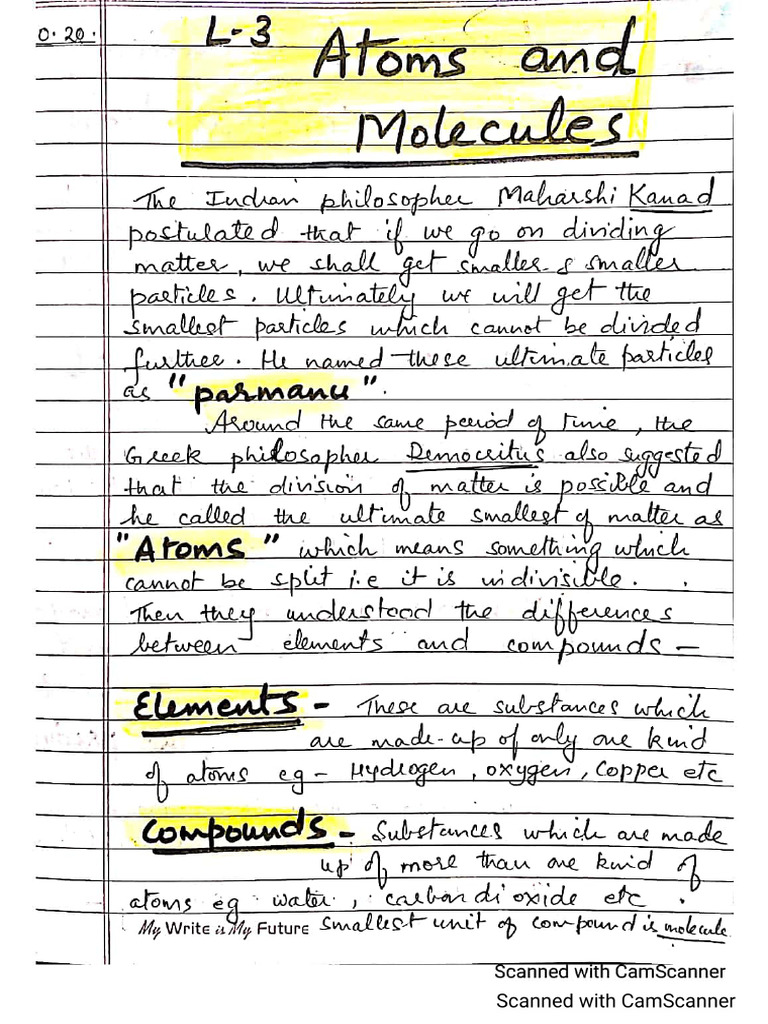 0.20.
L-3 Atoms and
Molecules
The Indian philosopher Maharshi Kanad
postulated that if we go on dividing
matter, we shall get smaller & smaller
particles. Ultimately we will get the
smallest particles which cannot be divided
further. He named these ultimate particles
as "parmanu".
Around the same period of time, the
Greek philosopher Democritus also suggested
that the division of matter is possible and
he called the ultimate smallest of matter as
"Atoms" which means something which
cannot be split i.e it is indivisible.
Then they understood the differences
between elements and compounds –
Elements - These are substances which
are made-up of only one kind
of atoms eg - Hydrogen, oxygen, Copper etc
Compounds - Substances which are made
up of more than one kind of
atoms eg water, carbon di oxide etc.
My Write is My Future smallest unit of compound is molecule
Scanned with CamScanner
Scanned with CamScanner